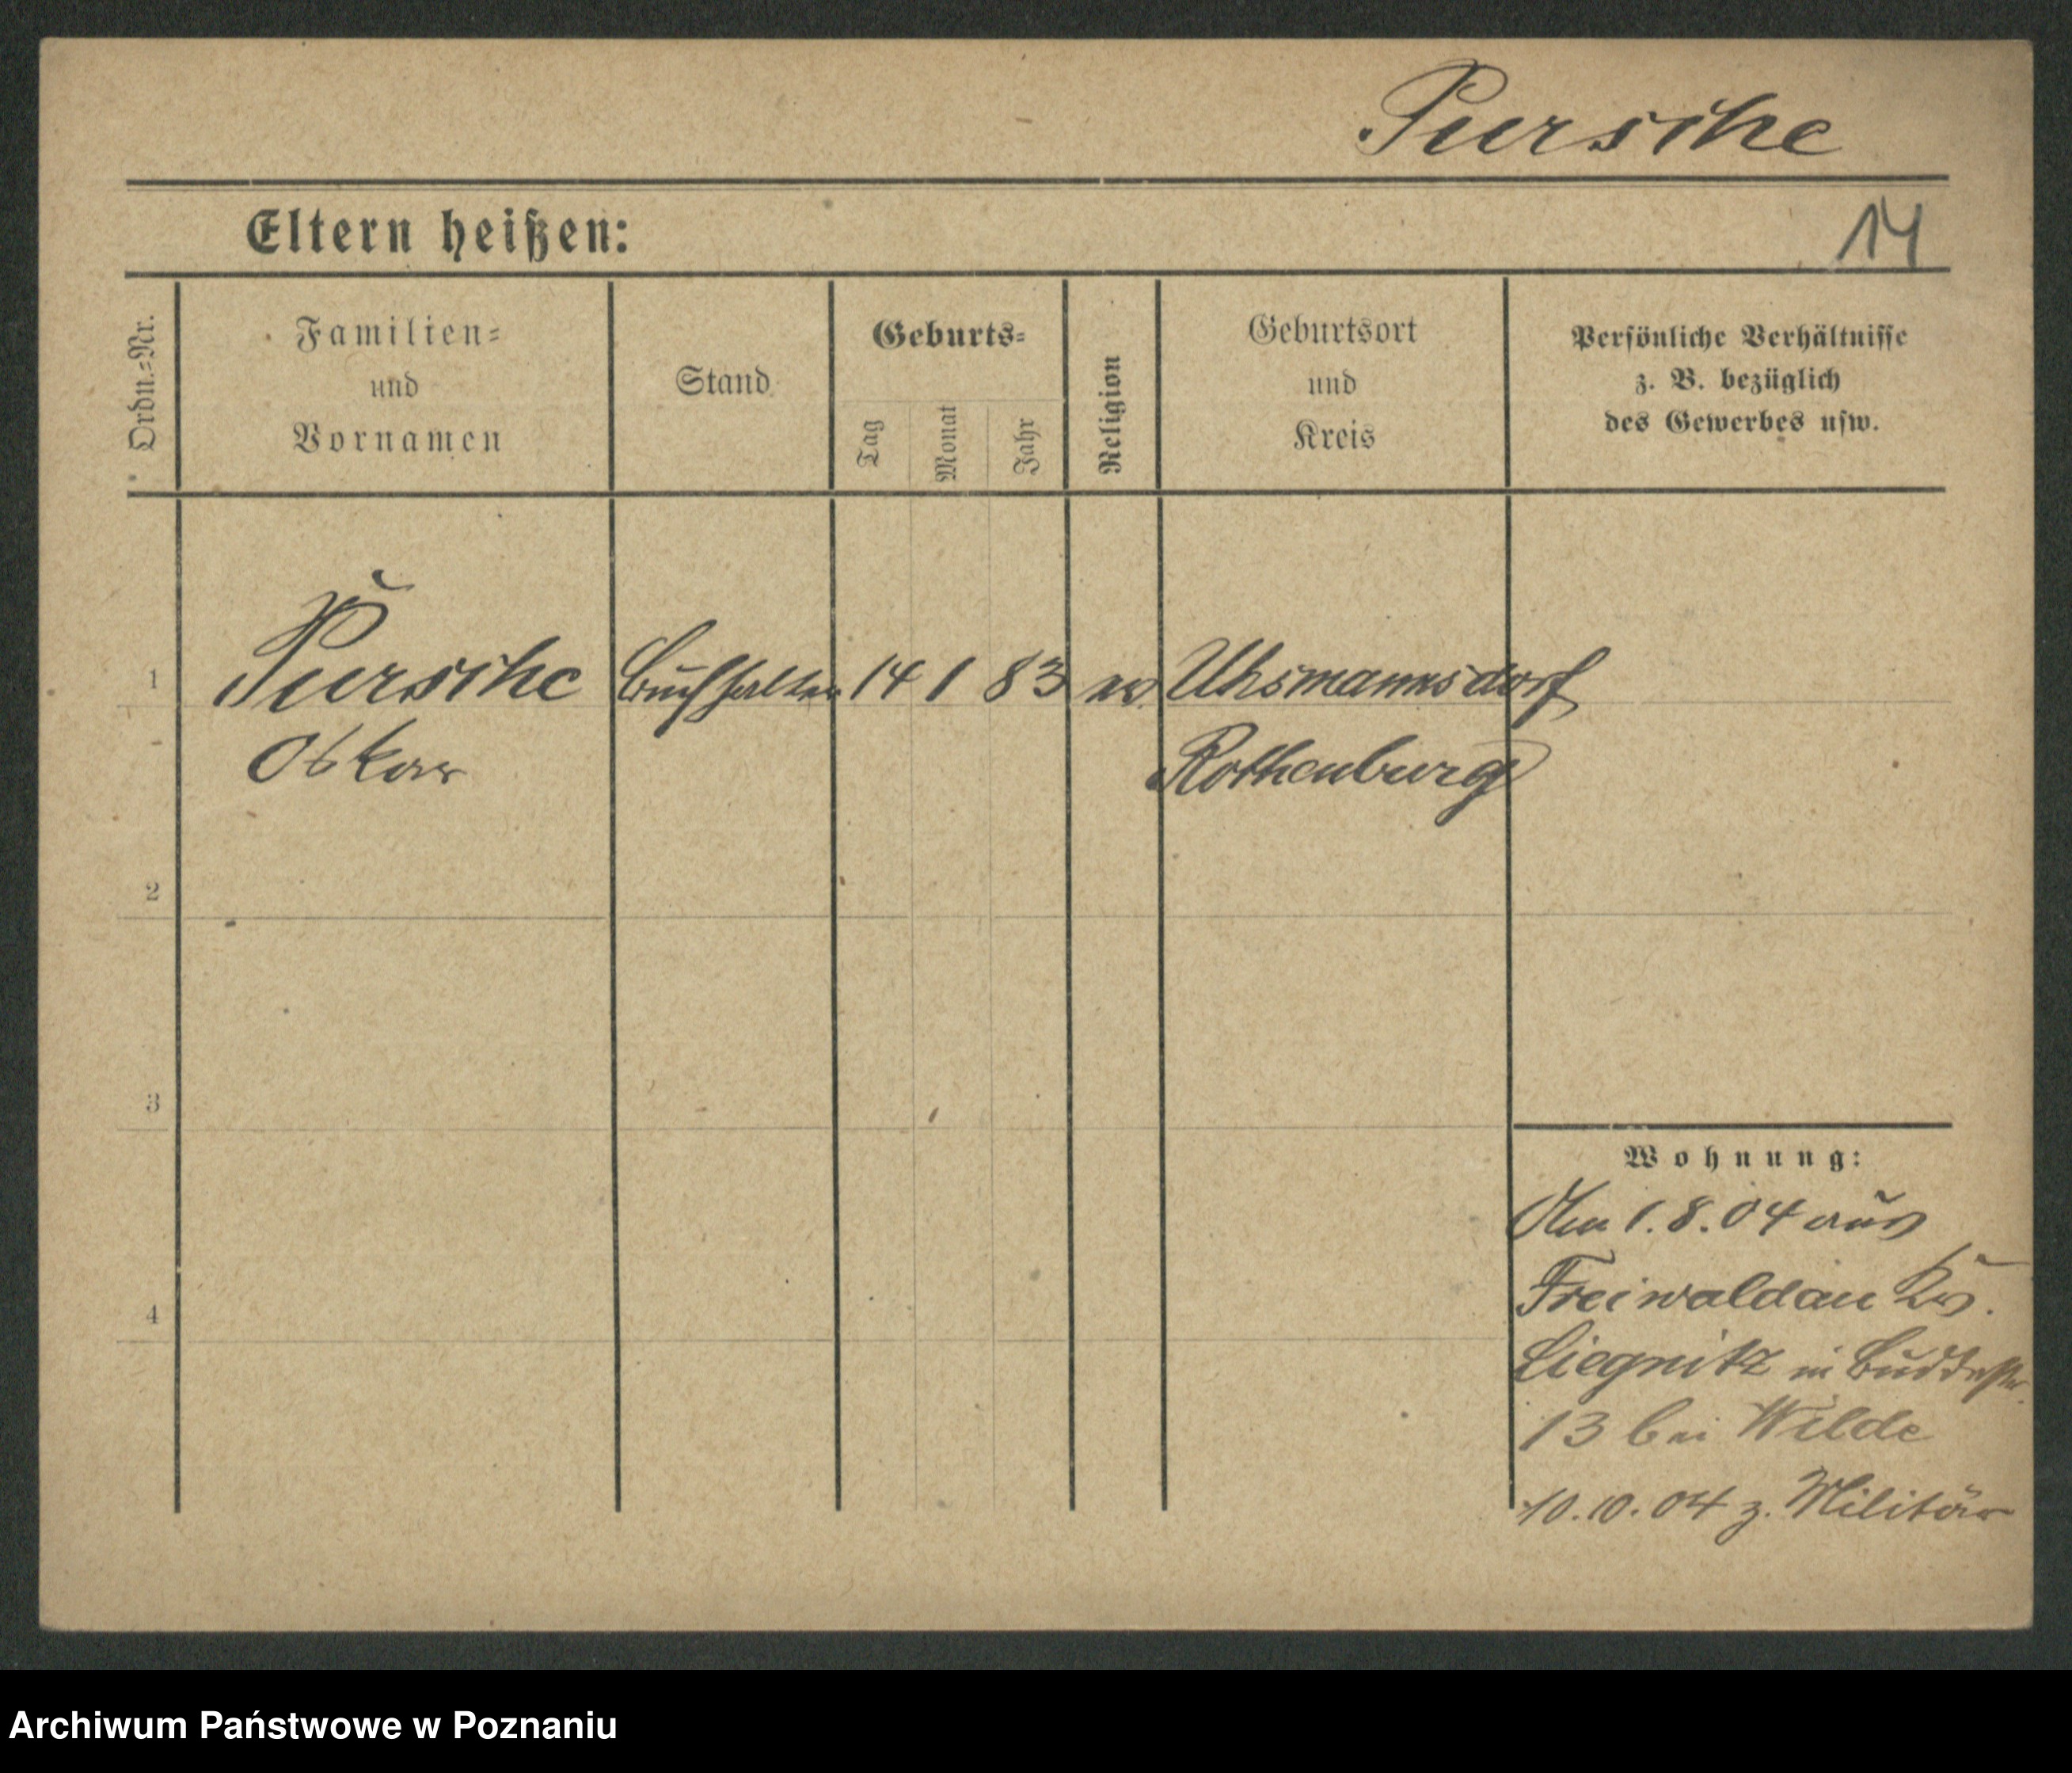 Pursche
Eltern heißen:
14
Ordn.-Nr.
Familien-
und
Vornamen
Stand
Geburts-
Tag
Monat
Jahr
Religion
Geburtsort
und
Kreis
Persönliche Verhältnisse
z. B. bezüglich
des Gewerbes usw.
1 Pursche Buchhalter 14 1 83 ev. Uhsmannsdorf
Oskar Rothenburg
2
3
4
Wohnung:
Am 1.8.04 aus
Freiwaldau Krs.
Liegnitz in Buddestr.
13 bei Wilde
10.10.04 z. Militär
Archiwum Państwowe w Poznaniu